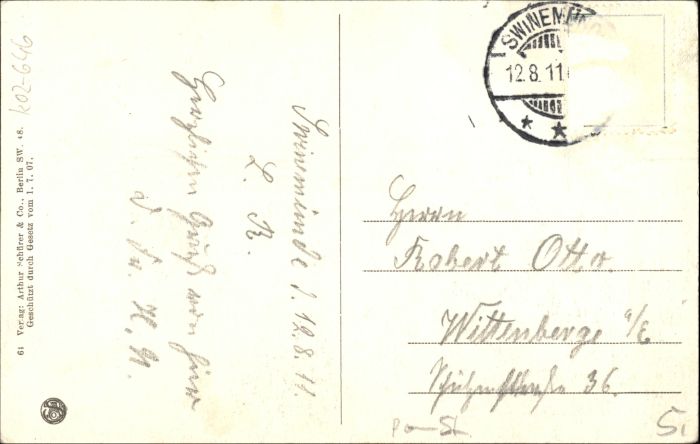 Swinemünde d. 12.8.11.
L. R.
Herzlichen Gruß von hier
d. Fr. K. N.
SWINEMÜN
12.8.11
Herrn
Robert Otto.
Wittenberge a/E
Schützenstraße 36.
61 Verlag: Arthur Schürer & Co., Berlin SW. 48.
Geschützt durch Gesetz vom 1. 7. 07.
k02-646
5,